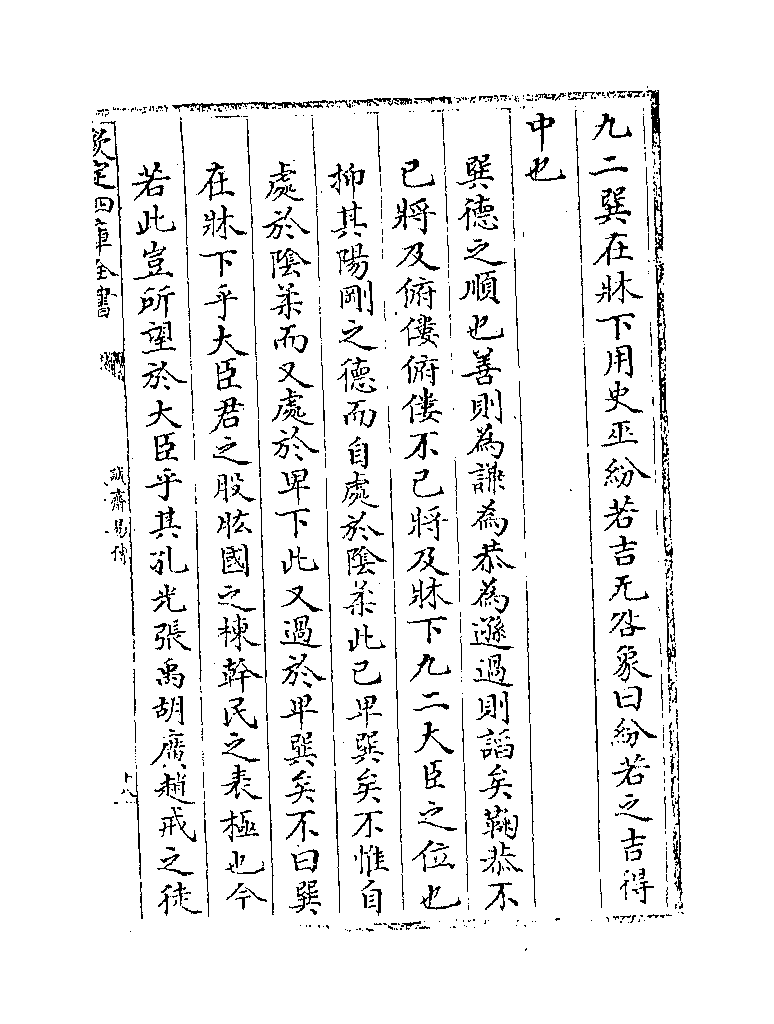 九二巽在牀下用史巫紛若吉无咎象曰紛若之吉得
中也
巽德之順也善則為謙為恭為遜過則謟矣鞠恭不
已將及俯僂俯僂不已將及牀下九二大臣之位也
抑其陽剛之德而自處於陰柔此已卑巽矣不惟自
處於陰柔而又處於卑下此又過於卑巽矣不曰巽
在牀下乎大臣君之股肱國之棟幹民之表極也今
若此豈所望於大臣乎其孔光張禹胡廣趙戒之徒
欽定四庫全書
誠齋易傳
十八